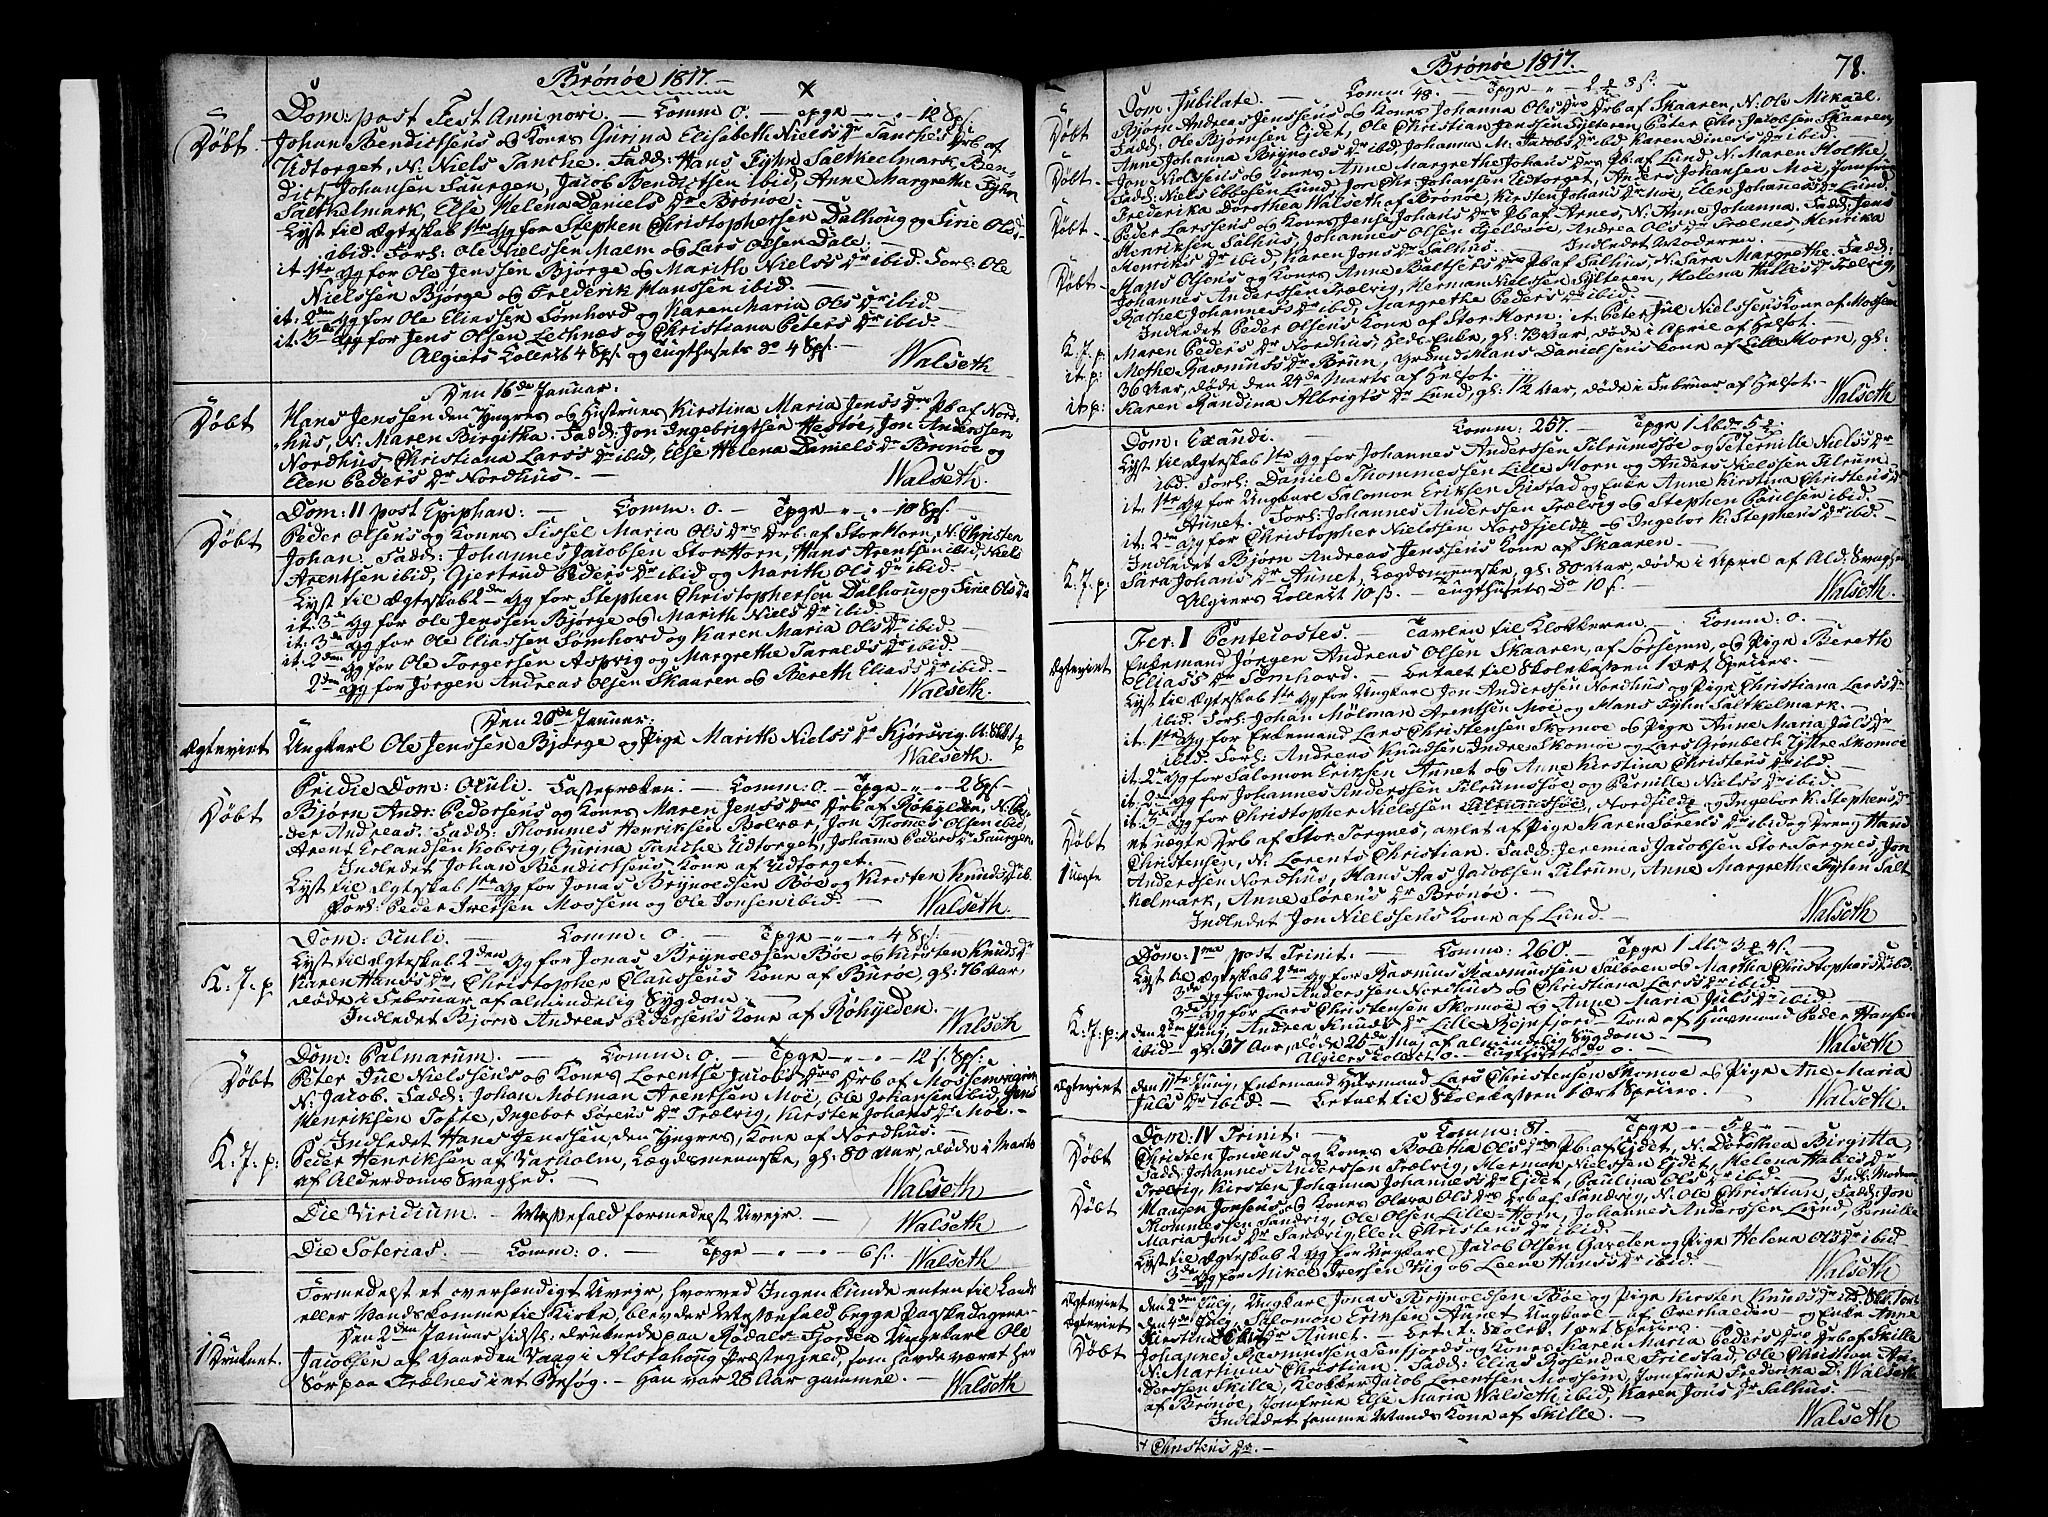 Brönöe 1817.
Dom: post Fest Anni novi. — Comm: 0. — Tpge " " 12 Sps.
Döbt
Johan Bendictsens og Kones Gurina Elisabeth Niels Dr Tanches Drb. af
Udtorget, N. Niels Tanche. Fadd: Hans Fyhn Saltkelmark, Ben-
dict Johansen Saurgen, Jacob Bendictsen ibid, Anne Margrethe Fyhn
Saltkelmark, Else Helena Daniels Dr Brönöe.
Lyst til Ægteskab 1ste Gg for Stephen Christophersen Dalhoug og Sirie Ols Dr
ibid. Forl: Ole Nielssen Malm og Lars Olsen Dale.
it. 1ste Gg for Ole Jenssen Bjørge og Marith Niels Dr ibid: Forl: Ole
Nielssen Bjørge og Frederik Hanssen ibid.
it: 2den Gg for Ole Eliassen Sömhord og Karen Maria Ols Dr ibid.
it: 3die Gg for Jens Olsen Lechnes og Christiana Peters Dr ibid.
Algiers Collect 4 Sps. og Tugthusets Do 4 Sps.
Walseth
Den 16de Januar:
Döbt
Hans Jenssen den Yngres og Hustrues Kirstina Maria Jens Drs Pb. af Nord-
hus, N: Maren Birgitha. Fadd: Jon Ingebrigtsen Hestöe, Jon Anderssen
Nordhus, Christiana Lars Dr ibid, Else Helena Daniels Dr Brönöe og
Elen Peders Dr Nordhus.
Walseth.
Dom: II post Epiphan: — Comm: 0. — Tpge " " 10 Sps.
Döbt
Peder Olsens og Kones Sissel Maria Ols Drs Drb. af Stor Horn, N. Christen
Johan. Fadd: Johannes Jacobsen Stor Horn, Hans Arentsen ibid, Niels
Arentsen ibid, Gjertrud Peders Dr ibid og Marith Ols Dr ibid.
Lyst til Ægteskab 2den Gg for Stephen Christophersen Dalhoug og Sirie Ols Dr
it: 3die Gg for Ole Jenssen Bjørge og Marith Niels Dr ibid.
it: 3die Gg for Ole Eliassen Sömhord og Karen Maria Ols Dr ibid.
it. 2den Gg for Ole Torgersen Aspvig og Margrethe Haralds Dr ibid.
2den Gg for Jørgen Andreas Olsen Skaaren og Bereth Elias Dr ibid.
Walseth.
Den 26de Januar:
Ægteviet
Ungkarl Ole Jenssen Bjørge og Pige Marith Niels Dr Kjörsvig.
Walseth.
Pridie Dom: Oculi. Fastepræken. — Comm: 0. — Tpge " " 2 Sps.
Döbt
Bjørn Andr: Pedersens og Kones Maren Jens Drs Drb af Röhylden, N. Pe-
der Andreas. Fadd: Thommes Henriksen Bolvær, Jon Thomes Olsen ibid,
Arent Erlandsen Kobvig, Gurina Tanche Udtorget, Johanna Peders Dr Saurgen
Indledet Johan Bendictsens Kone af Udtorget.
Lyst til Ægteskab 1ste Gg for Jonas Brynoldsen Böe og Kirsten Knuds Dr ib.
Forl: Peder Iversen Mossem og Ole Jonsen ibid.
Walseth.
Dom: Oculi. — Comm: 0. — Tpge " " 4 Sps:
Lyst til Ægteskab 2den Gg for Jonas Brynoldsen Böe og Kirsten Knuds Dr
K. J. p.
Karen Hans Dr, Christopher Claussens Kone af Buröe, gl: 76 Aar,
döde i Februar af almindelig Sygdom.
Indledet Bjørn Andreas Pedersens Kone af Röhylden.
Walseth
Dom: Palmarum. — Comm: 0. — Tpge " " 12 Sps:
Döbt
Peter Jul Nielssens og Kones Lorentse Jacobs Drs Drb af Mossem
N: Jacob. Fadd: Johan Mölman Arentsen Moe, Ole Johansen ibid, Jens
Henriksen Tofte, Ingebor Sörens Dr Trælvig, Kirsten Johans Dr Moe.
Indledet Hans Jenssen, den Yngres, Kone af Nordhus.
K: J: p:
Peder Henriksen af Varholm, Lægdsmenneske, gl: 80 Aar, döde i Marts
af Alderdoms Svaghed.
Walseth
Die Viridium. — Messefald formedelst Uvejr.
Walseth
Die Soterias. — Comm: 0. — Tpge " " 6 s:
Walseth
Formedelst et overhændigt Uvejr, hvorved Ingen kunde enten til Lands
eller Vands komme til Kirke, blev der Messefald begge Paaskedagene.
1 Druknet.
Den 2den Januar sidstl: druknede paa Rödals-Fjorden Ungkarl Ole
Jacobsen af Gaarden Vaag i Alstahoug Præstegjeld, som havde været her
Sör paa Trælnes i et Besög. — Han var 28 Aar gammel.
Walseth
Brönöe 1817.
78.
Dom: Jubilate. — Comm 48. — Tpge
Döbt
Bjørn Andreas Jenssens og Kones Johanna Ols Drs Drb af Skaaren, N: Ole Mikael.
Fadd: Ole Bjørnsen Ejdet, Ole Christian Jenssen Sylteren, Peter Chr. Jacobsen Skaaren,
Anne Johanna Brynolds Dr ibid Johanna M. Jacobs Dr ibid Karen Dines Dr ibid.
Döbt
Jon Nielssens og Kones Anne Margrethe Johans Drs Pb. af Lund, N. Maren Holthe
Fadd: Niels Ebbesen Lund, Jon Chr. Johansen Udtorget, Anders Johansen Moe, Jomfru
Frederika Dorothea Walseth af Brönöe, Kirsten Johans Dr Moe, Elen Johanes Dr Lund.
Döbt
Peder Larssens og Kones Jense Johans Drs Pb af Arnes, N: Anne Johanna. Fadd: Jens
Henriksen Salhus, Johannes Olsen Fjeldsöe, Andrea Ols Dr Trælnes, Henrika
Henriks Dr ibid, Karen Jons Dr Salhus. Indledet Moderen.
Döbt
Hans Olsens og Kones Anne Balthsers Drs Pb af Salhus, N: Sara Margrethe. Fadd:
Johannes Anderssen Trælvig, Herman Nielssen Sylteren, Helena Halles Dr Trælvig,
Rachel Johannes Dr ibid, Margrethe Peders Dr ibid.
Indledet Peder Olsens Kone af Stor Horn: it. Peter Jul Nielssens Kone af Mossem
K. J. p.
Maren Peders Dr Nordhus Leds Enke, gl: 73 Aar, döde i April af Helsot.
it. p:
Methe Rasmus Dr Brun, Grdmd Hans Danielsens Kone af Lille Horn, gl:
36 Aar, döde den 24de Marts af Helsot.
it p:
Karen Randina Albrigts Dr Lund, gl: 1½ Aar, döde i Februar af Helsot.
Walseth
Dom: Exaudi. — Comm: 257. — Tpge 1 Rbdr
Lyst til Ægteskab 1ste Gg for Johannes Anderssen Tilrumsöe og Peternille Niels Dr
ibid. Forl: Daniel Thommessen Lille Horn og Anders Nielssen Tilrum
it. 1ste Gg for Ungkarl Salomon Eriksen Ristad og Enke Anne Kirstina Christens Dr
Aunet. Forl: Johannes Anderssen Trelvig og Stephen Paulsen ibid.
it: 2den Gg for Christopher Nielssen Nordfjelde og Ingebor K. Stephens Dr ibid.
Indledet Bjørn Andreas Jenssens Kone af Skaaren.
K: J. p:
Sara Johans Dr Aunet, Lægdsmenneske, gl: 80 Aar, döde i April af Ald: Svaghed
Algiers Collect 10 ß. — Tugthusets Do 10 s.
Walseth.
Fer: I Pentecostes. — Tavlen til Klokkeren. — Comm: 0.
Ægteviet
Enkemand Jørgen Andreas Olsen Skaaren, af Sörsemn og Pige Bereth
Elias Dr Sömhord. — Betalt til Skolekassen 1 ort Species.
Lyst til Ægteskab 1ste Gg for Ungkarl Jon Anderssen Nordhus og Pige Christiana Lars Dr
ibid. Forl: Johan Mölman Arentsen Moe og Hans Fyhn Saltkelmark.
it. 1ste Gg for Enkemand Lars Christensen Skomoe og Pige Anne Maria Juls Dr
ibid. Forl: Andreas Knudsen Indre Skomoe og Lars Grönbech Yttre Skomoe
it: 2de Gg for Salomon Eriksen Aunet og Anne Kirstina Christens Dr ibid
it. 2de Gg for Johannes Anderssen Tilrumsöe og Pernille Niels Dr ibid.
it. 3de Gg for Christopher Nielssen Tilrumsöe, Nordfilde og Ingebor K. Stephens Dr
Döbt
1 Uægte
et uægte Drb. af Stor Torgnes, avlet af Pige Karen Sörens Dr ibid og Dreng Hans
Christensen, N: Lorents Christian. Fadd: Jeremias Jacobsen Stor Torgnes, Jon
Anderssen Nordhus, Hans Aas Jacobsen Tilrum, Anne Margrethe Fyhn Salt-
kelmark, Anne Sörens Dr Brönöe.
Indledet Jon Nielssens Kone af Lund.
Walseth
Dom: 1ma post Trinit: — Comm: 260. — Tpge 1 Rbdr
Lyst til Ægteskab 2den Gg for Rasmus Rasmussen Salboen og Martha Christophers Dr ibid.
3de Gg for Jon Anderssen Nordhus og Christiana Lars Dr ibid.
3de Gg for Lars Christensen Skomoe og Anne Maria Juls Dr ibid.
K. J. p:
den 2den Junj, Andrea Knuds Dr Lille Bejefjord, Kone af Husmand Peder Hansen
ibid. gl: 37 Aar, döde 25de Maj af almindelig Sygdom.
Algiers Collect 0. — Tugthusets Do 0.
Walseth
Ægteviet
den 11te Junj, Enkemand Husmand Lars Christensen Skomoe og Pige Ane Maria
Juls Dr ibid. — Betalt til Skolekassen 1 ort Species.
Walseth.
Dom: IV Trinit: — Comm: 81. — Tpge
Döbt
Christen Jonsens og Kones Boletha Ols Drs Pb: af Ejdet, N: Dorothea Birgitta,
Fadd: Johannes Anderssen Trælvig, Herman Nielssen Ejdet, Helena Halles Dr
Trælvig, Kirsten Johanna Johannes Dr Ejdet, Paulina Ols Dr ibid. Indl: Moderen
Döbt
Maagen Jonsens og Kones Olava Ols Drs Drb af Sandvig, N: Ole Christian, Fadd: Jon
Thommessen Sandvig, Ole Olsen Lille-Horn, Johannes Anderssen Lund, Pernille
Maria Jons Dr Sandvig, Elen Christens Dr ibid.
Lyst til Ægteskab 2 Gg for Ungkarl Jacob Olsen Gaxelen og Pige Helena Ols Dr ibid
3de Gg for Mikel Iversen Vig og Leene Hans Dr ibid.
Walseth
Ægteviet
den 2den Julj, Ungkarl Jonas Brynoldsen Böe og Pige Kirsten Knuds Dr ib.
Ægteviet
den 4de Julj, Salomon Eriksen Aunet Ungkarl af Overhalden og Enke Anne
Kirstina + Dr Aunet. — Bet. t. Skolek. 1 ort Species.
Döbt
Johannes Rasmussen Tenfjords og Kones Karen Maria Peders Drs Drb af Skille
N: Martinus Christian. Fadd: Elias Rosendal Tilstad, Ole Christian An-
derssen Skille, Klokker Jacob Lorentsen Mossem, Jomfrue Frederika D. Walseth
af Brönöe, Jomfrue Else Maria Walseth ibid, Karen Jons Dr Salhus.
Indledet samme Mands Kone af Skille.
Walseth
+ Christens Dr.